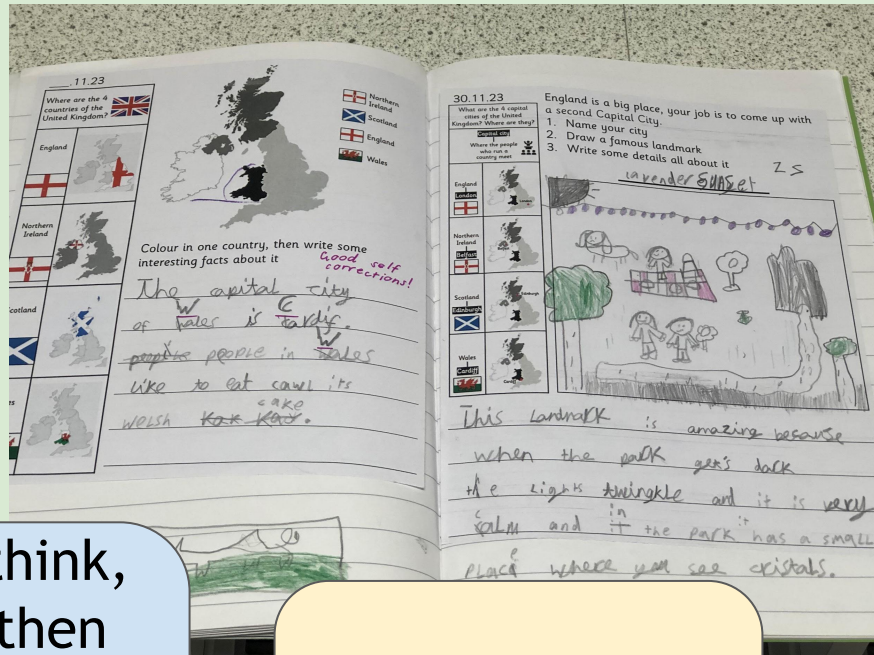 __.11.23
Where are the 4
countries of the
United Kingdom?
England
Northern
Ireland
Scotland
Northern
Ireland
Scotland
England
Wales
Colour in one country, then write some
interesting facts about it
Good self
corrections!
The capital city
W C
of wales is cardif.
W
people people in wales
like to eat cawl its
cake
welsh
30.11.23
What are the 4 capital
cities of the United
Kingdom? Where are they?
Capital city
Where the people
who run a
country meet
England
London
Northern
Ireland
Belfast
Scotland
Edinburgh
Wales
Cardiff
London
Edinburgh
Cardiff
England is a big place, your job is to come up with
a second Capital City.
1. Name your city
2. Draw a famous landmark
3. Write some details all about it
lavender sunset
This Landmark is amazing besause
when the park gets dark
the lights twingkle and it is very
c in it
calm and it the park has a small
e
place where you see cristals.
think,
then